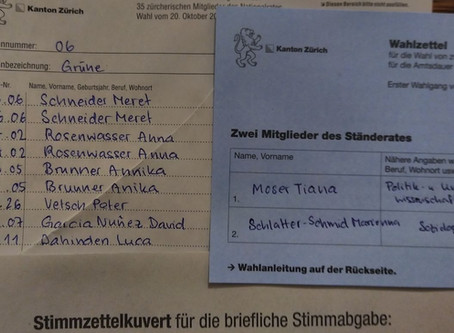 Kanton Zürich
35 zürcherischen Mitglieder des Nationalrates
Wahl vom 20. Oktober 20
nummer: 06
nbezeichnung: Grüne
-Nr. Name, Vorname, Geburtsjahr, Beruf, Wohnort
.06 Schneider Meret
.06 Schneider Meret
.02 Rosenwasser Anna
.02 Rosenwasser Anna
.05 Brunner Annika
.05 Brunner Anika
.26 Vetsch Peter
.07 Garcia Nuñez David
.11 Dahinden Luca
Kanton Zürich
Wahlzettel
für die Wahl von z
für die Amtsdauer
Erster Wahlgang v
Zwei Mitglieder des Ständerates
Name, Vorname
Nähere Angaben w
Beruf, Wohnort us
1. Moser Tiana Politik- u
wissenschaf
2. Schlatter-Schmid Marionna Soziolog
→ Wahlanleitung auf der Rückseite.
Stimmzettelkuvert für die briefliche Stimmabgabe: